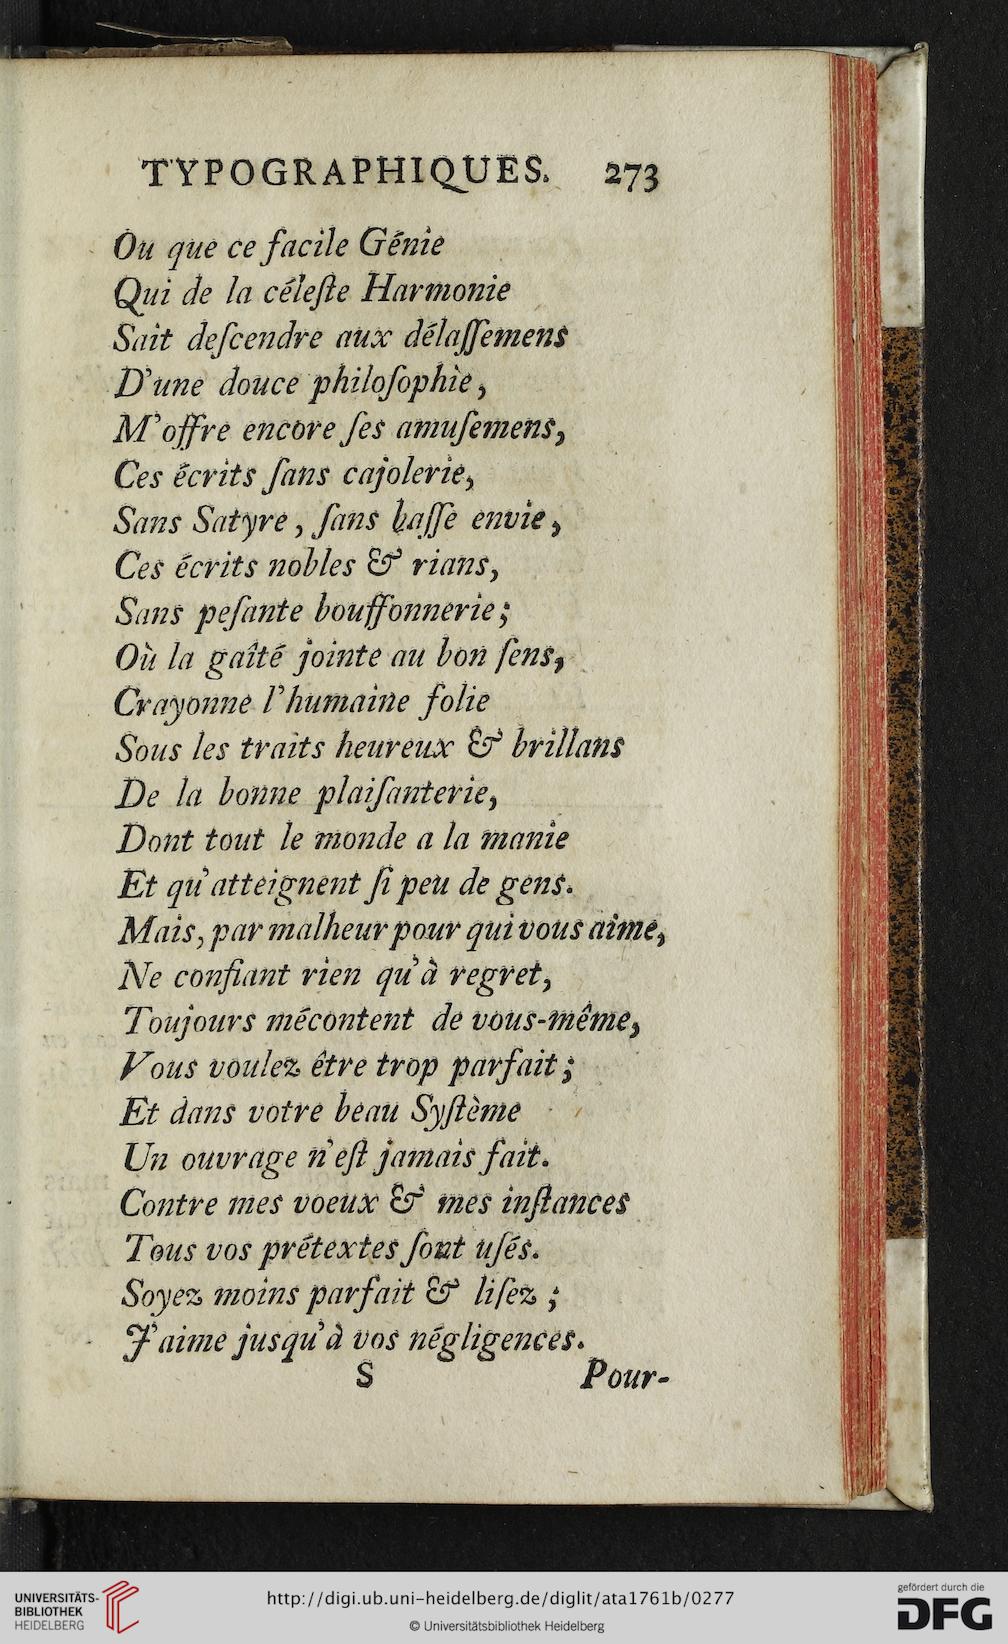 TYPOGRAPHIQUES. 273
Ou que ce facile Génie
Qui de la céleſte Harmonie
Sait deſcendre aux délaſſemens
D'une douce philoſophie,
M'offre encore ſes amuſemens,
Ces écrits ſans cajolerie,
Sans Satyre, ſans baſſe envie,
Ces écrits nobles & rians,
Sans peſante bouffonnerie;
Où la gaîté jointe au bon ſens,
Crayonne l'humaine folie
Sous les traits heureux & brillans
De la bonne plaiſanterie,
Dont tout le monde a la manie
Et qu'atteignent ſi peu de gens.
Mais, par malheur pour qui vous aime,
Ne confiant rien qu'à regret,
Toujours mécontent de vous-même,
Vous voulez être trop parfait;
Et dans votre beau Syſtème
Un ouvrage n'eſt jamais fait.
Contre mes voeux & mes inſtances
Tous vos prétextes ſont uſés.
Soyez moins parfait & liſez;
J'aime jusqu'à vos négligences.
S Pour-
UNIVERSITÄTS-
BIBLIOTHEK
HEIDELBERG
http://digi.ub.uni-heidelberg.de/diglit/ata1761b/0277
© Universitätsbibliothek Heidelberg
gefördert durch die
DFG